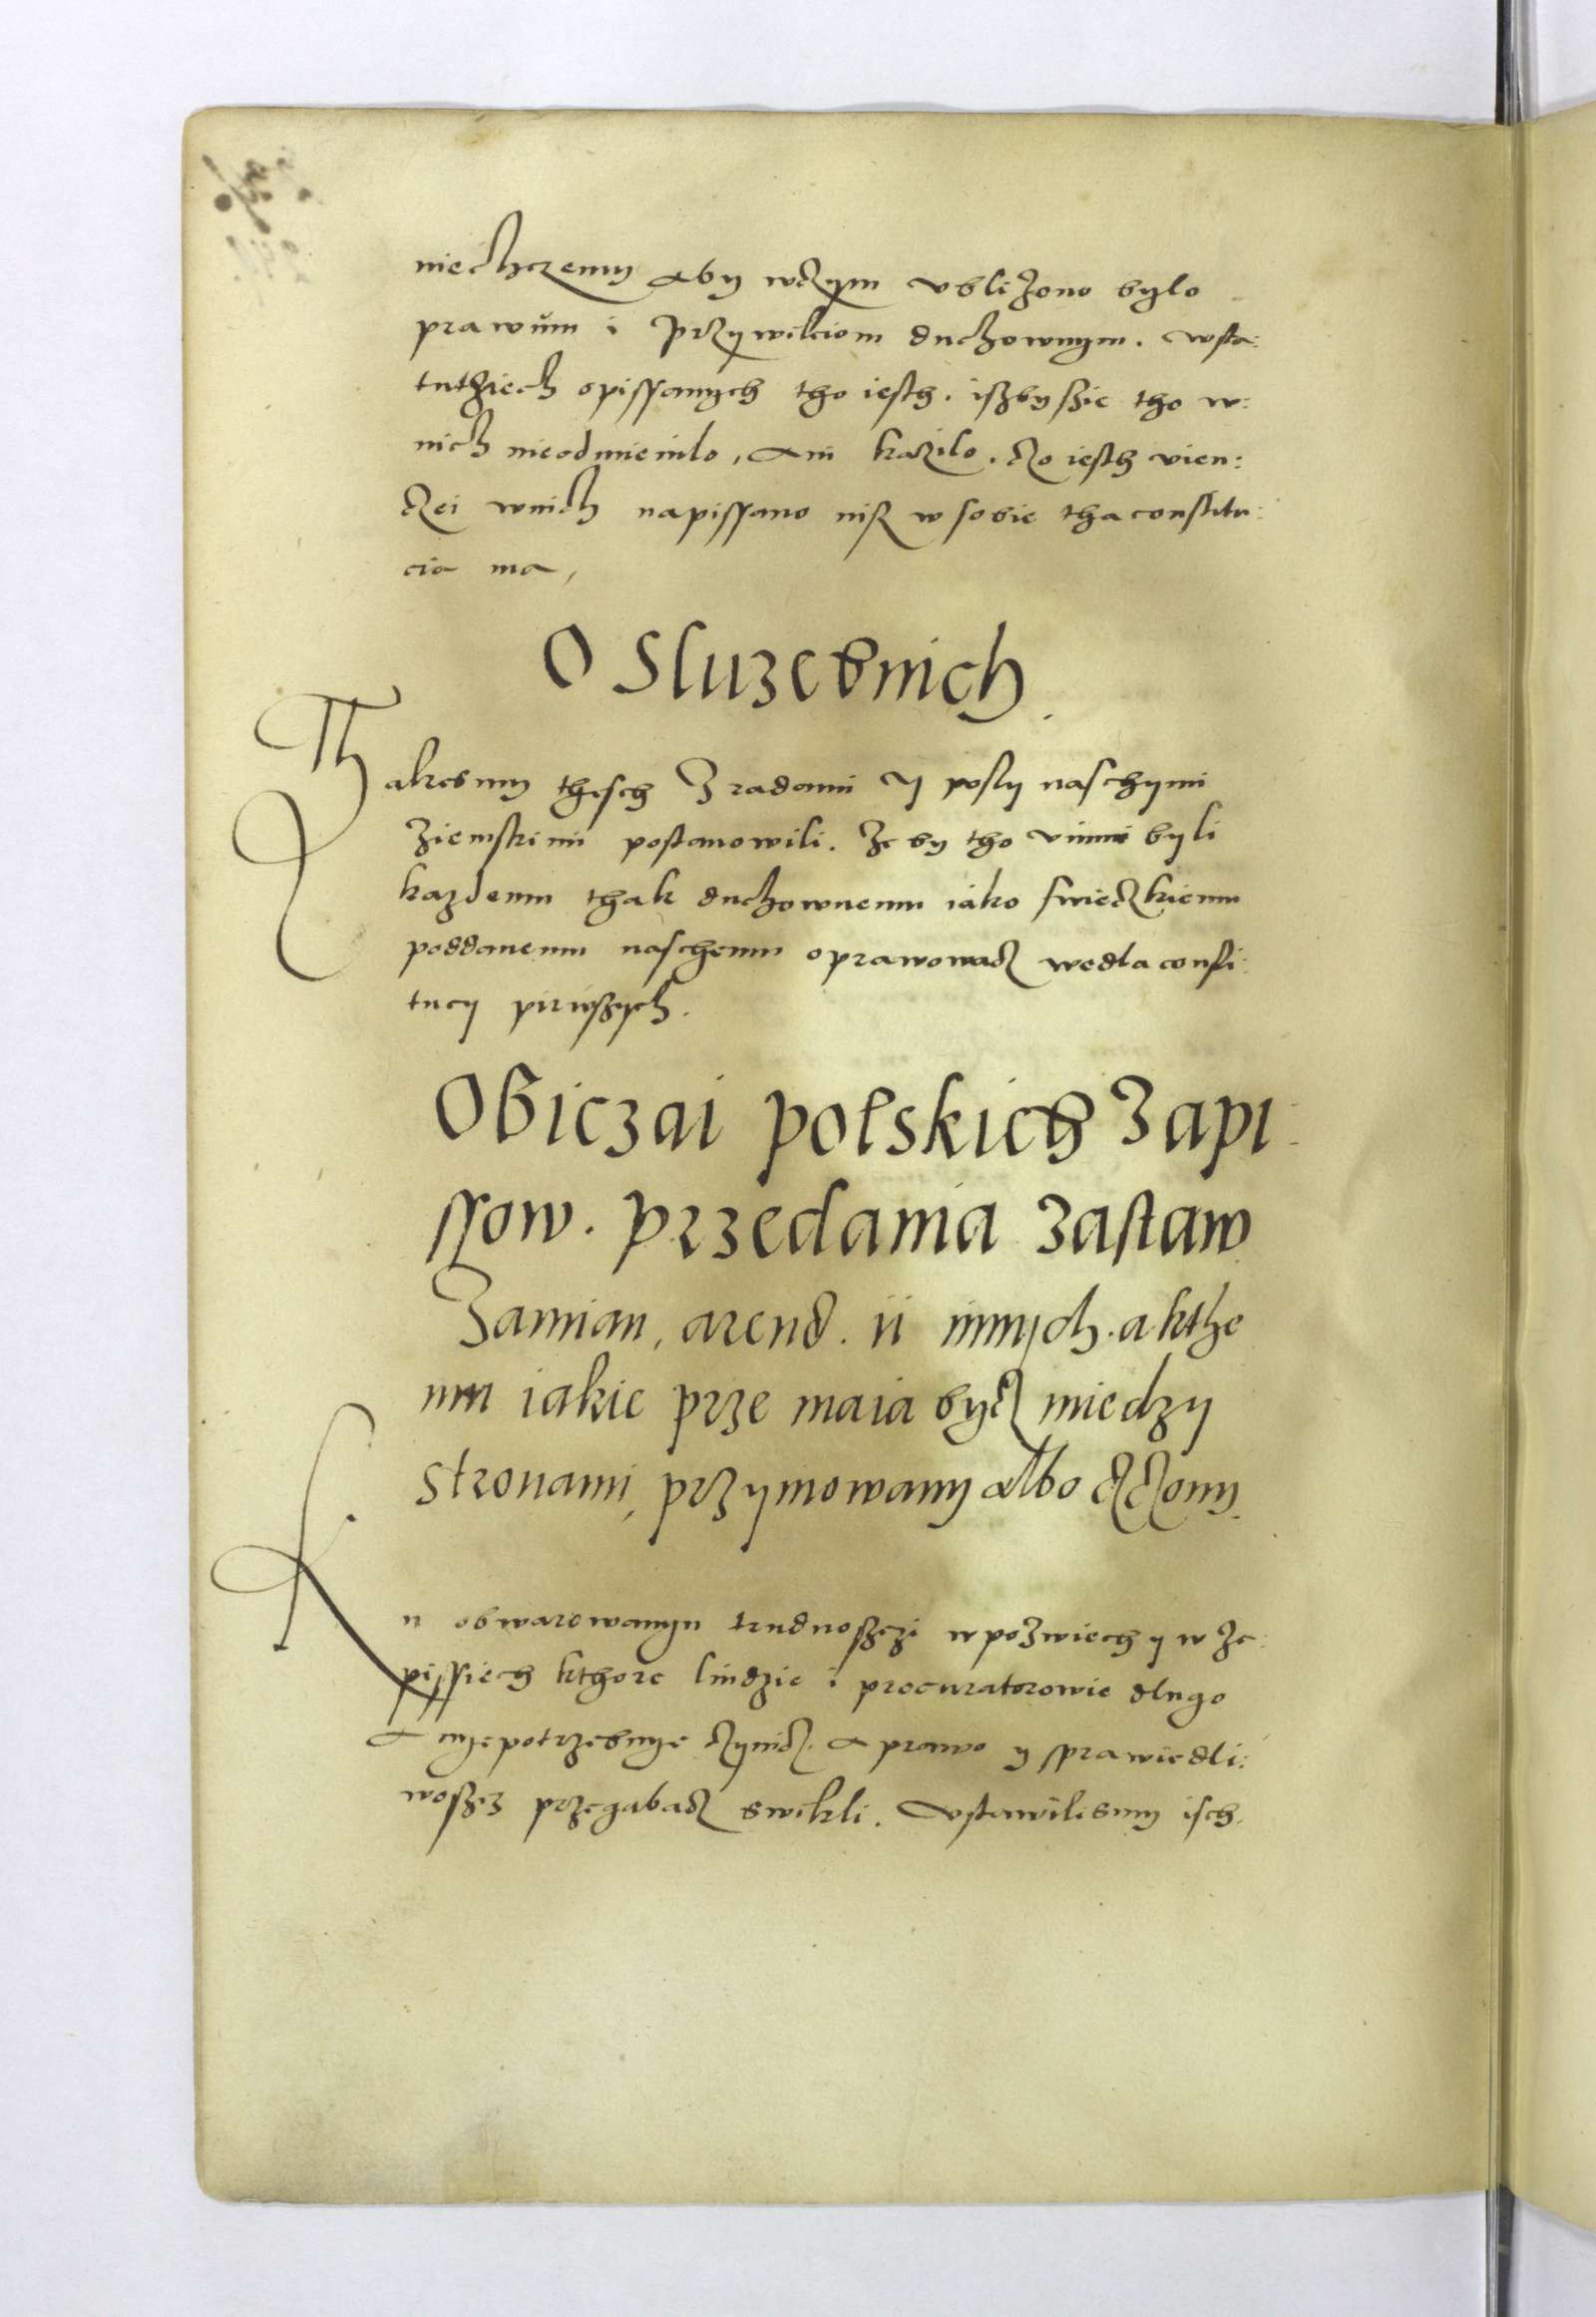 niechczemy aby wczym ubliżono bylo
prawum i Przywileiom duchownym. wsta:
tuthziech opissanych tho iesth. iszby szie tho w:
nich nieodmienilo, ani kazilo. czo iesth vien:
czei wnich napissano nisz w sobie tha constitu:
cia ma,
O Sluzebnich.
Thakesmy thesch Z radami y posly naschymi
ziemskimi postanowili. że by tho vinni byli
kazdemu thak duchownemu iako swieczkiemu
poddanemu naschemu oprawowacz wedla consti:
tucy pirwszych.
Obiczai polskich Zapi:
ssow. przedania zastaw
Zamian, arend. ii innych. a kthe
mu iakie prze maia bycz miedzy
stronami, przymowany albo czczony.
Ku obwarowanyu trudnoszczi w pozwiech y w że:
pissiech kthore liudzie i procuratorowie dlugo
a nyepotrzebnye czynicz. a prawo y sprawiedli:
woszcz przegabacz swikli. Vstawilismy isch.